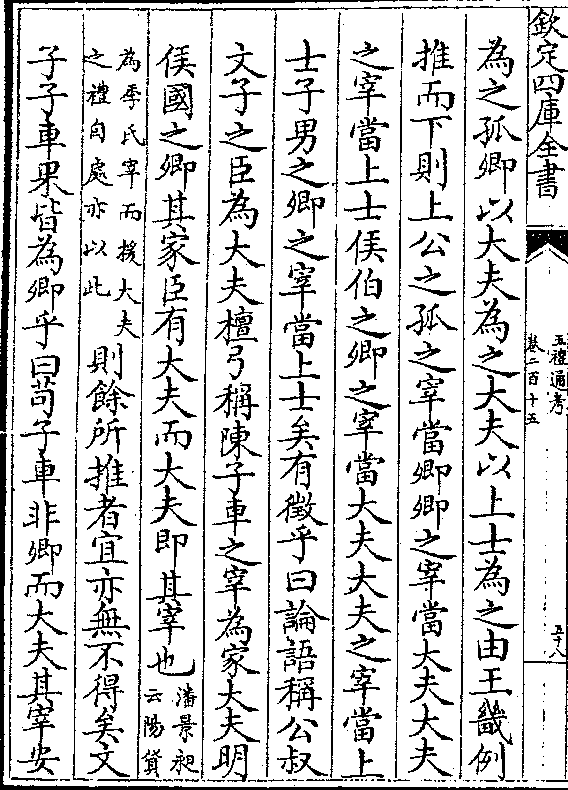 欽定四庫全書
五禮通考
卷二百十五
五十八
為之孤卿以大夫為之大夫以上士為之由王畿例
推而下則上公之孤之宰當卿卿之宰當大夫大夫
之宰當上士侯伯之卿之宰當大夫大夫之宰當上
士子男之卿之宰當上士矣有徵乎曰論語稱公叔
文子之臣為大夫檀弓稱陳子車之宰為家大夫明
侯國之卿其家臣有大夫而大夫即其宰也潘景昶
云陽貨
為季氏宰而援大夫
之禮自處亦以此
則餘所推者宜亦無不得矣文
子子車果皆為卿乎曰茍子車非卿而大夫其宰安